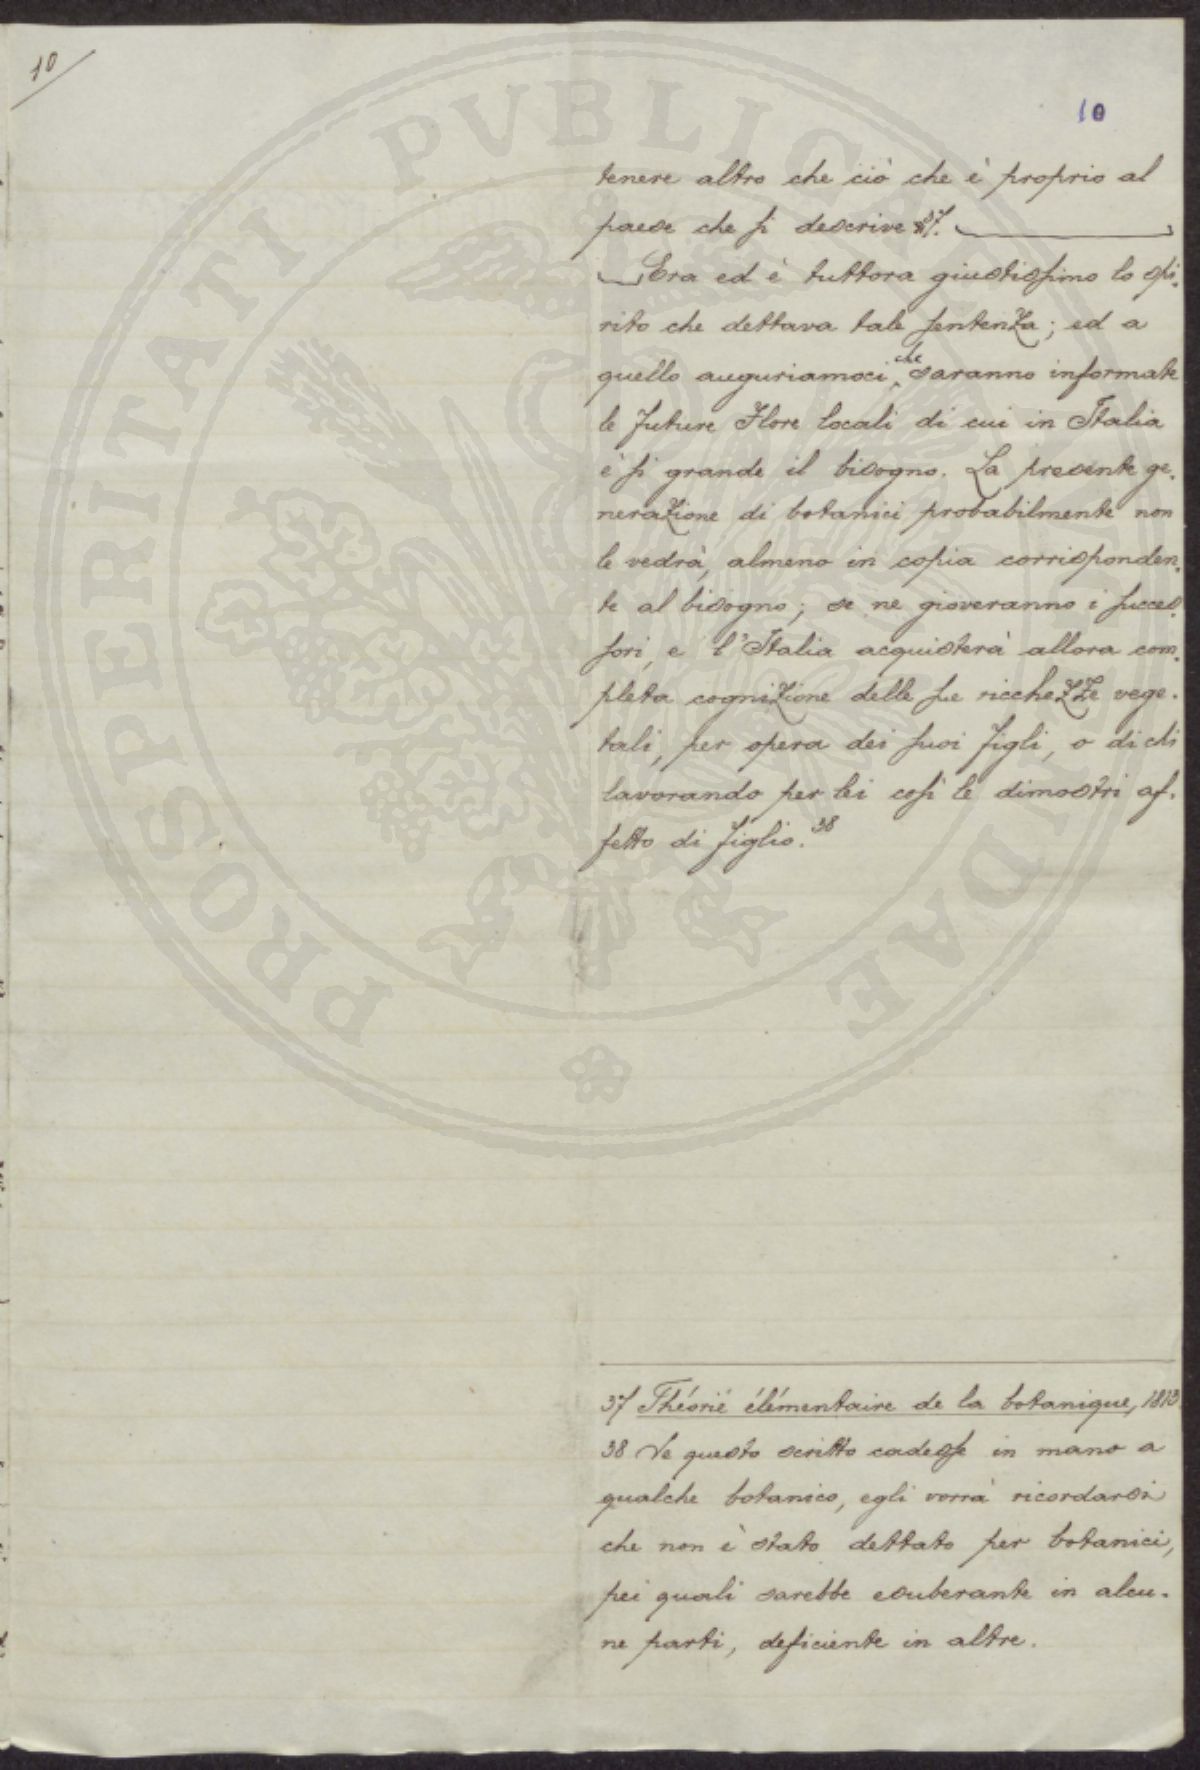 10
10
tenere altro che ciò che è proprio al
paese che si descrive 37.
Era ed è tuttora giustissimo lo spi-
rito che dettava tale sentenza; ed a
quello auguriamoci, che saranno informate
le future Flore locali di cui in Italia
è sì grande il bisogno. La presente ge-
nerazione di botanici probabilmente non
le vedrà, almeno in copia corrisponden-
te al bisogno; se ne gioveranno i succes-
sori, e l'Italia acquisterà allora com-
pleta cognizione delle sue ricchezze vege-
tali, per opera dei suoi figli, o di chi
lavorando per lei così le dimostri af-
fetto di figlio. 38
37 Théorié élémentaire de la botanique, 1813
38 Se questo scritto cadesse in mano a
qualche botanico, egli vorrà ricordarsi
che non è stato dettato per botanici,
pei quali sarebbe esuberante in alcu-
ne parti, deficiente in altre.
PROSPERITATI PVBLICAE